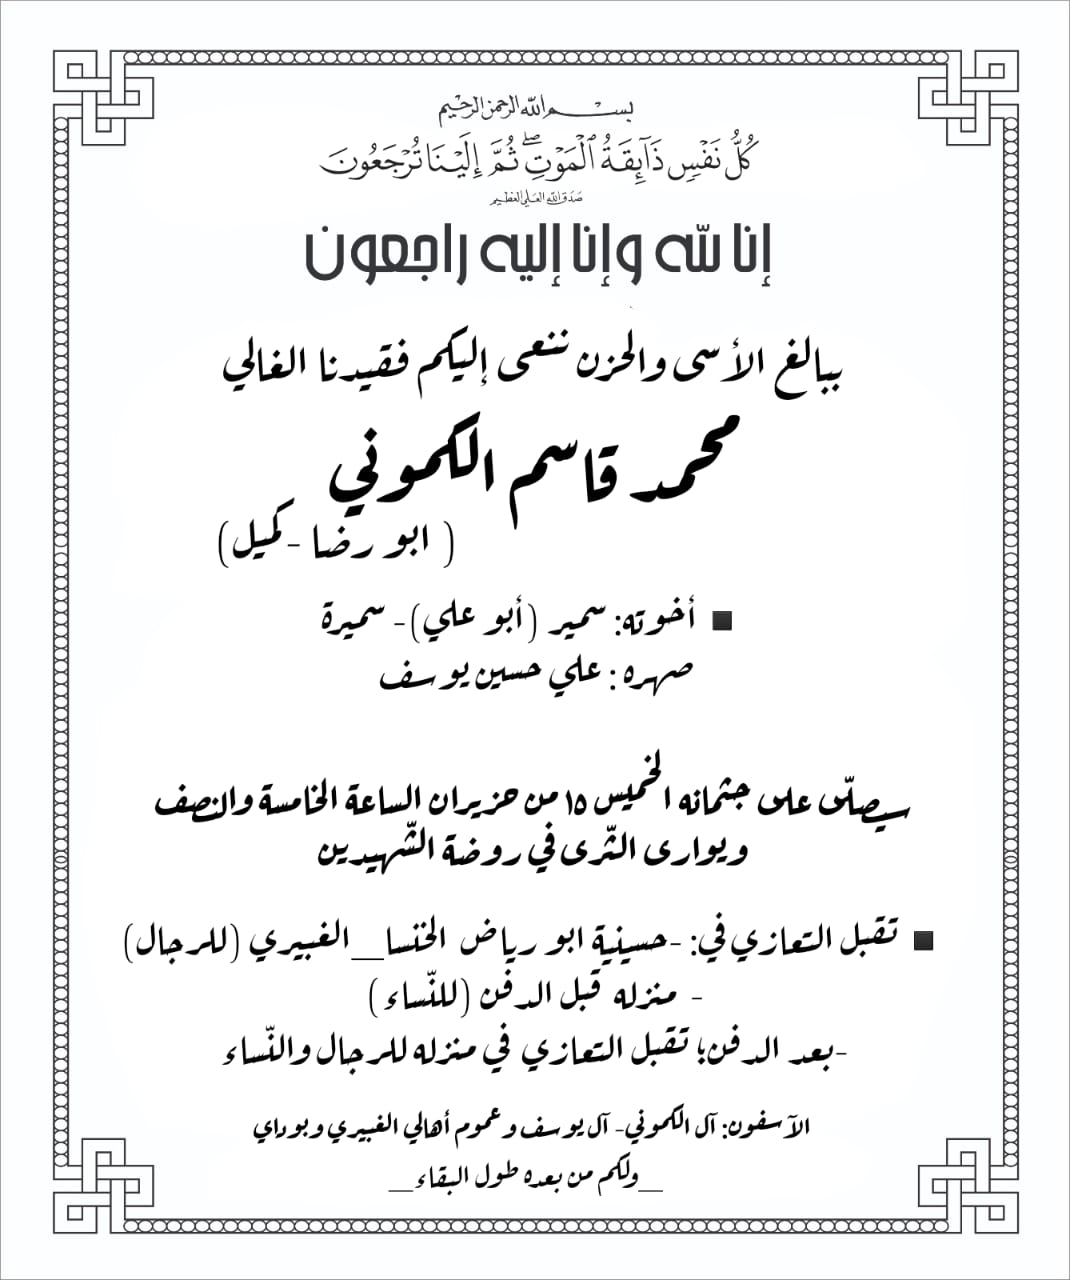 بسم الله الرحمن الرحيم
كُلُّ نَفْسٍ ذَآئِقَةُ ٱلْمَوْتِ ۖ ثُمَّ إِلَيْنَا تُرْجَعُونَ
صدق الله العلي العظيم
إنا لله وإنا إليه راجعون
ببالغ الأسى والحزن ننعى إليكم فقيدنا الغالي
محمد قاسم الكموني
( ابو رضا -كميل)
■ أخوته: سمير (أبو علي)- سميرة
صهره : علي حسين يوسف
سيصلّى على جثمانه الخميس ١٥ من حزيران الساعة الخامسة والنصف
ويوارى الثّرى في روضة الشّهيدين
■ تقبل التعازي في: -حسينية ابو رياض الخنسا__ الغبيري (للرجال)
- منزله قبل الدفن (للنّساء)
-بعد الدفن؛ تقبل التعازي في منزله للرجال والنّساء
الآسفون: آل الكموني- آل يوسف وعموم أهالي الغبيري وبوداي
__ولكم من بعده طول البقاء__